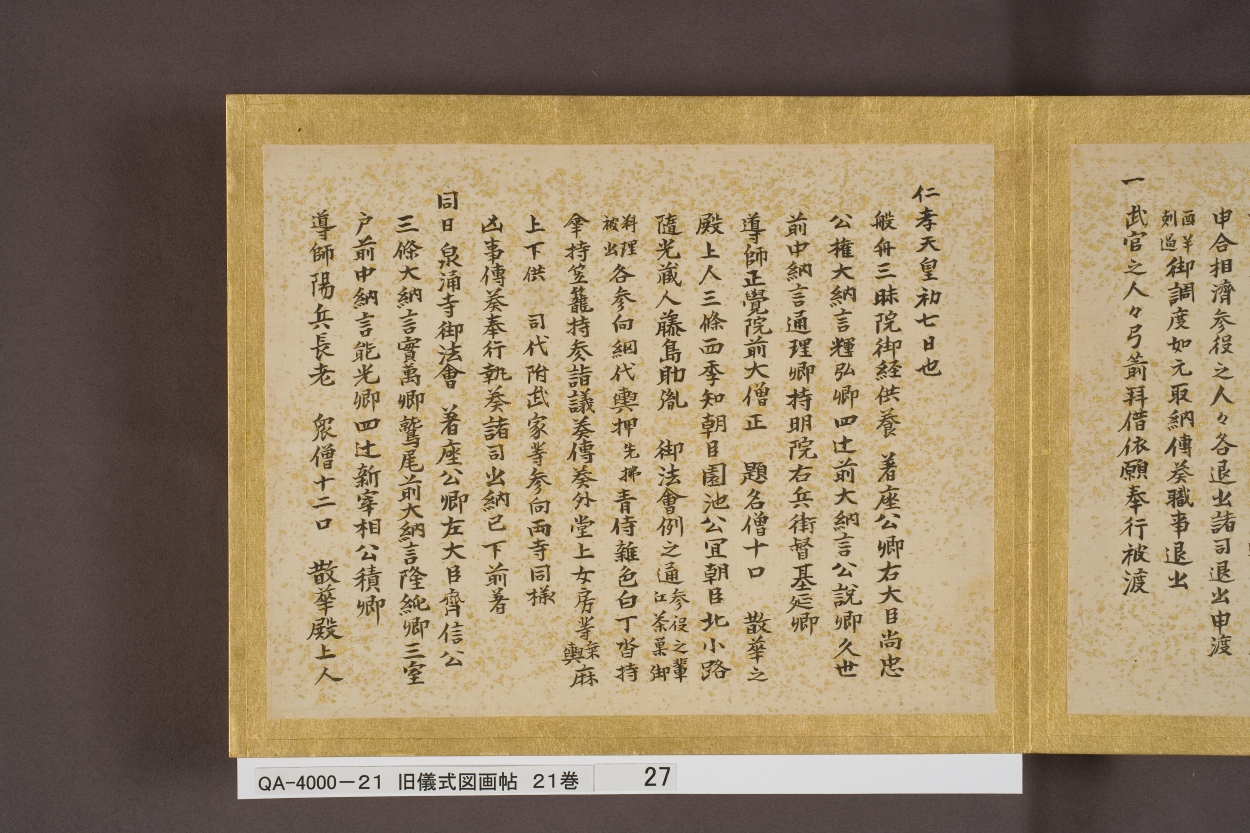 申合相濟参役之人々各退出諸司退出申渡
面羊
剋過御調度如元取納傳奏職事退出
一 武官之人々弓箭拜借依願奉行被渡
仁孝天皇初七日也
般舟三昧院御経供養 著座公卿右大臣尚忠
公権大納言輝弘卿四辻前大納言公説卿久世
前中納言通理卿持明院右兵衛督基延卿
導師正覺院前大僧正 題名僧十口 散華之
殿上人三條西季知朝臣園池公冝朝臣北小路
隨光蔵人藤島助胤 御法會例之通参役之輩江茶菓御
料理被出各参向網代輿押先拂青侍雜色白丁沓持
傘持笠籠持参詣議奏傳奏外堂上女房等乗輿麻
上下供 司代附武家等参向両寺同様
凶事傳奏奉行執奏諸司出納已下前著
同日泉涌寺御法會 著座公卿左大臣齊信公
三條大納言實萬卿鷲尾前大納言隆純卿三室
戸前中納言能光卿四辻新宰相公積卿
導師陽兵長老 衆僧十二口 散華殿上人
QA-4000-21 旧儀式図画帖 21巻 27